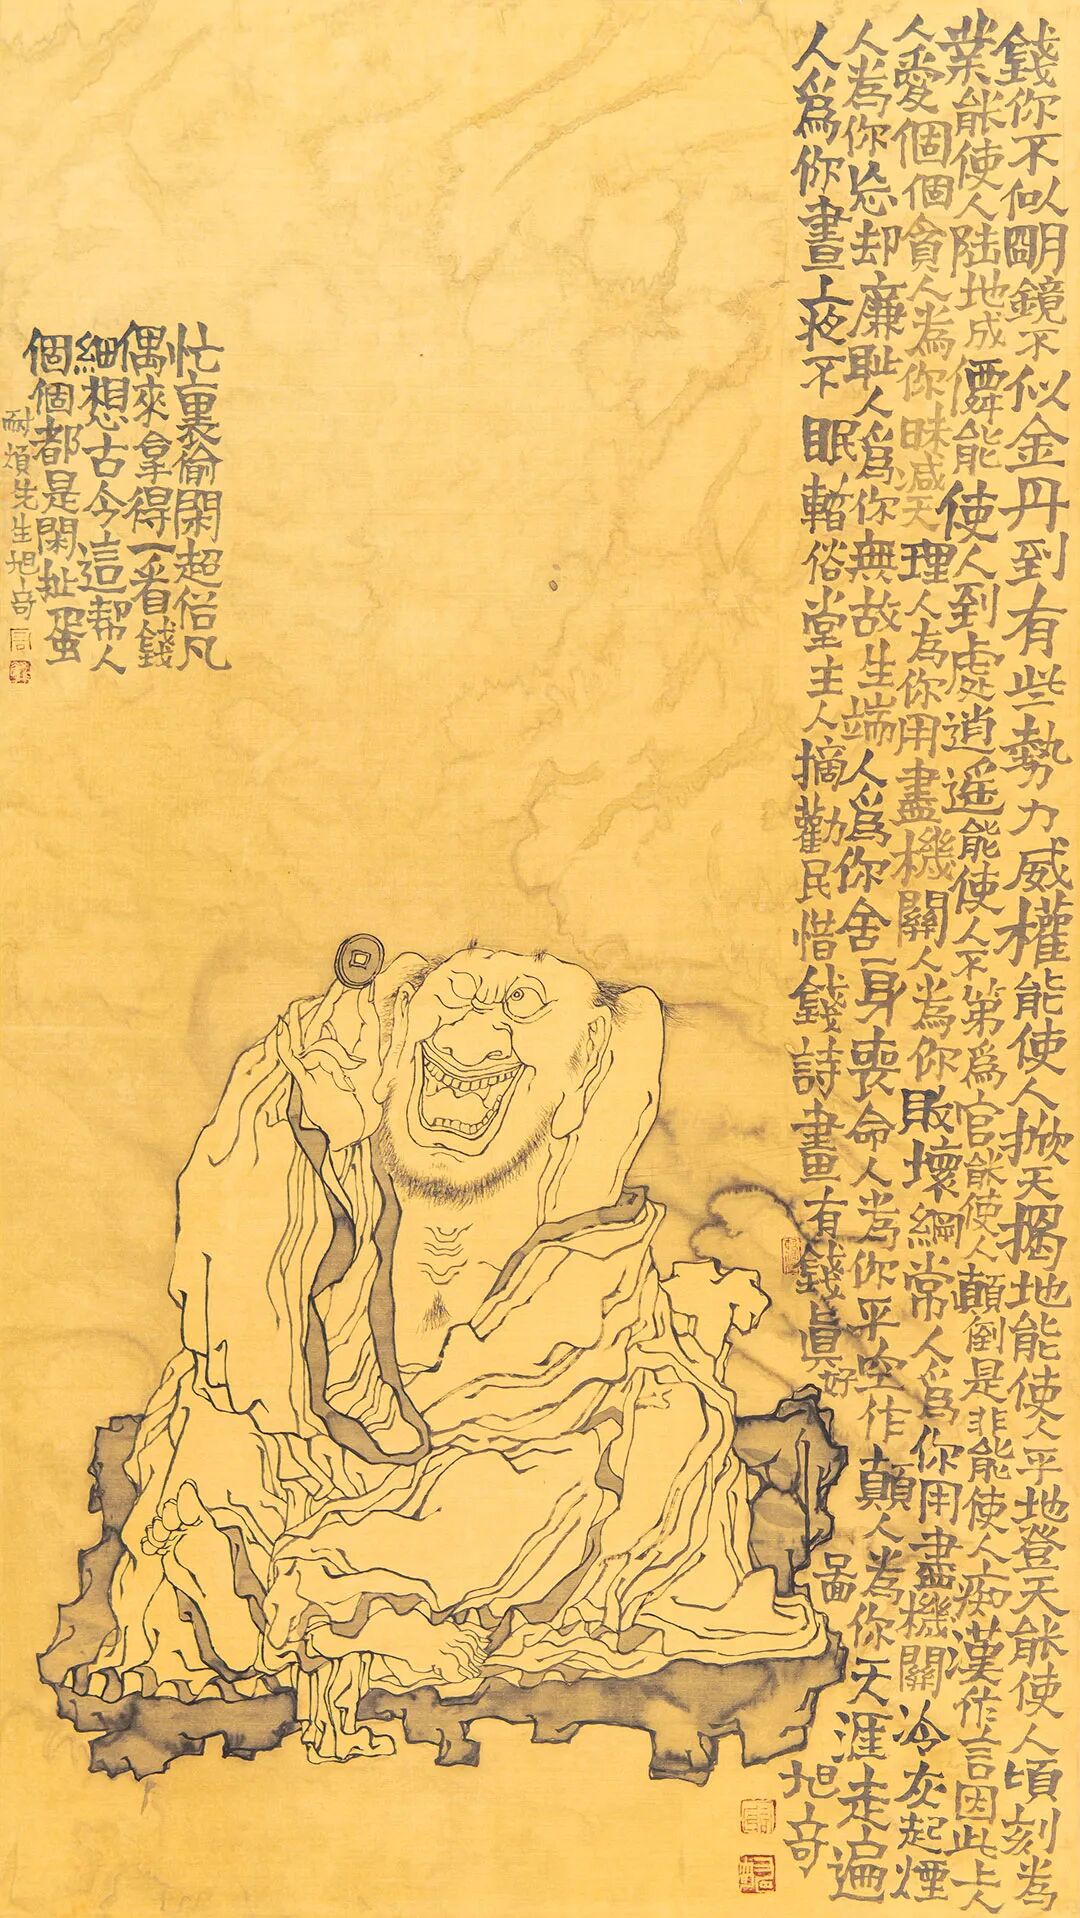 錢你不似明鏡不似金丹到有些勢力威權能使人掀天揭地能使人平地登天能使人頃刻為
業能使人陸地成僊能使人到處逍遥能使人不第爲官能使人顛倒是非能使人痴漢作言因此上人
人愛個個貪人為你昧减天理人為你用盡機關人為你敗壞綱常人爲你用盡機關冷灰起煙
人為你忘却廉耻人爲你無故生端人爲你舍身喪命人為你平空作顛人為你天涯走遍
人爲你晝夜不眠俗堂主人摘勸民惜錢詩畫有錢眞好啚旭奇
忙裏偷閑超俗凡
偶來拿得一看錢
細想古今這幫人
個個都是閑扯蛋
耐煩先生旭奇